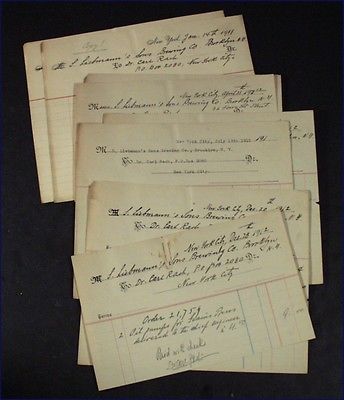 New York Jan. 14th 1911
M S. Liebmann's Sons Brewing Co. Brooklyn N.Y.
To Dr. Carl Rach Dr.
P.O. Box 2080, New York City
New York City, April
Mess. S. Liebmann's Sons Brewing Co. Brooklyn, N.Y.
To Dr. Carl Rach
New York City, July 18th 1912 191
M S. Liebmann's Sons Brewing Co., Brooklyn, N. Y.
To Dr. Carl Rach, P.O.Box 2080 Dr.
New York City.
New York City, Dec 20th 1912
M S. Liebmann's Sons Brewing
To Dr. Carl Rach
New York City, Dec 1912
M S. Liebmann's Sons Brewing Co. Brooklyn N.Y.
To Dr. Carl Rach, P.O. Box 2080 Dr.
New York City
Order 21,757
2 Oil pumps for
delivered to the chief engineer
Paid with check